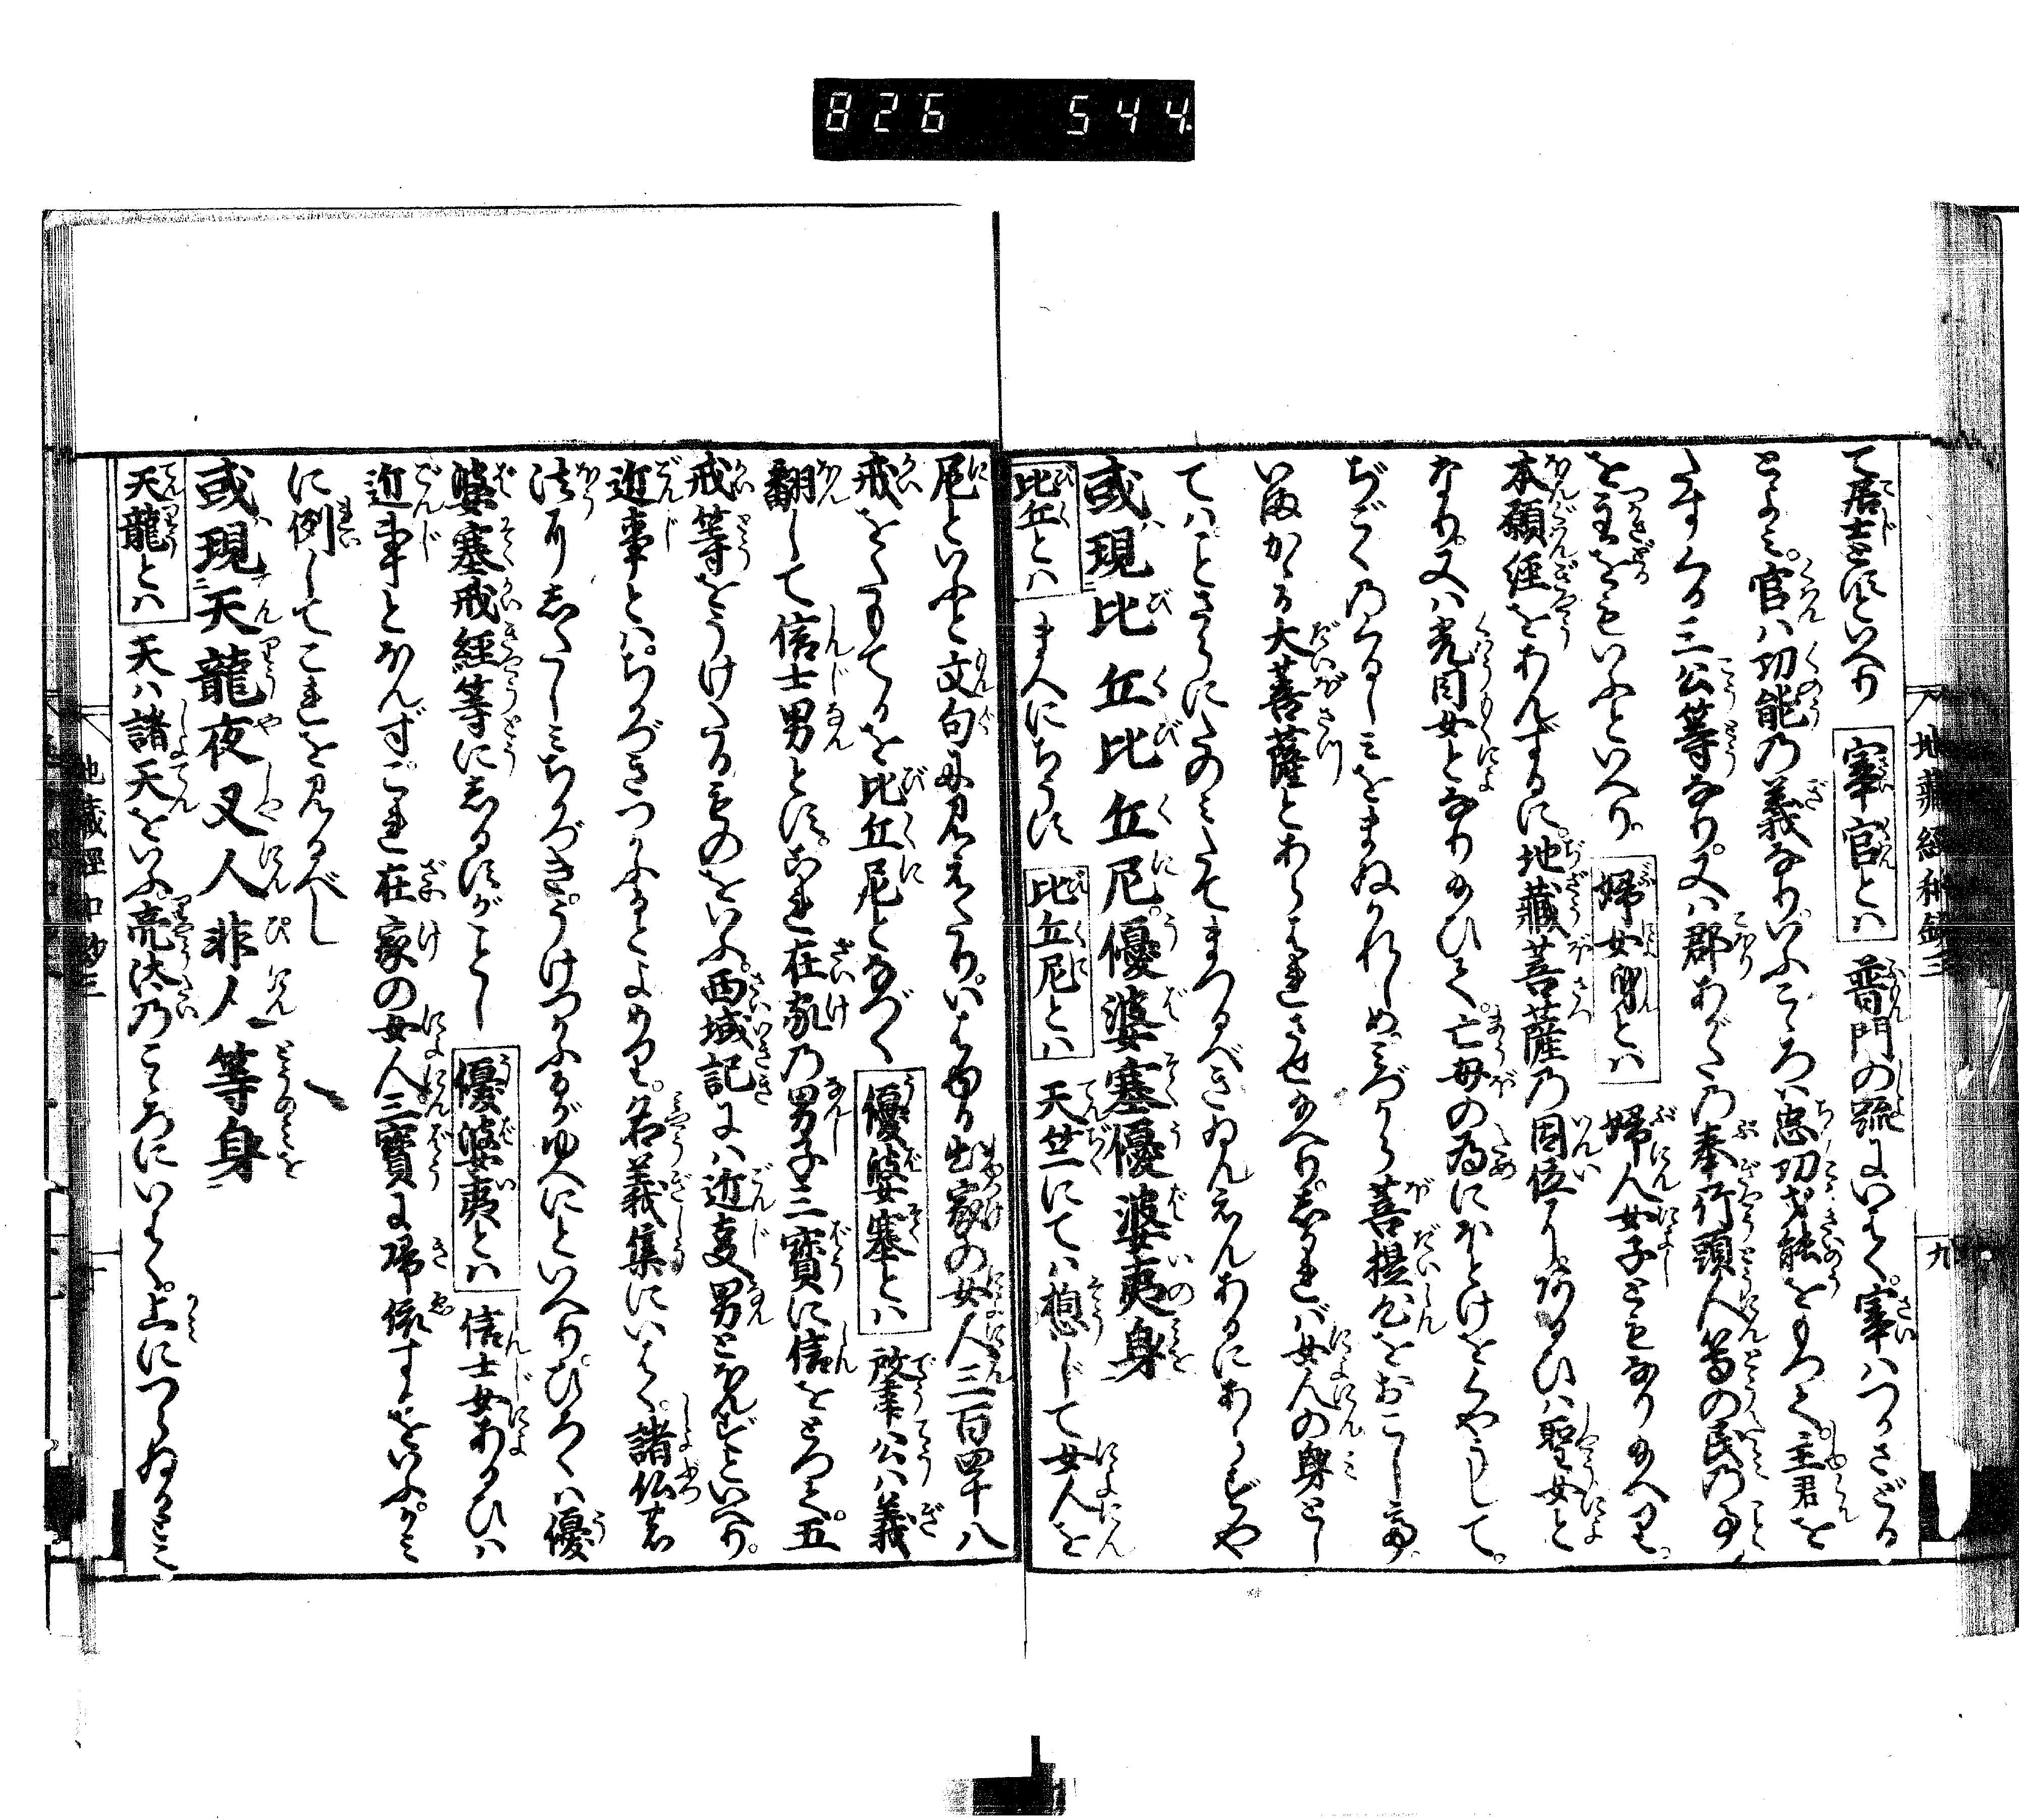 826 544
地藏經和鈔三
九
て居士とすといへり 宰官とハ 普門の疏にいはく。宰ハつかさどる
とよミ。官ハ功能の義なり。いふこゝろハ忠功才能をもつて。主君を
たすくる三公等なり。又ハ郡あがたの奉行頭人等の民の事
をつかさどるをもいふといへり。 婦女身とハ 婦人女子ともなり給へり。
本願經をあんずるに。地藏菩薩の因位に。あるひハ聖女と
なり。又ハ光目女となり給ひて。亡母の為にほとけをくやうして。
ぢごくのくるしミをまぬかれしめ。ミづから菩提心をおこし給ふ。
いまかゝる大菩薩とあらハれさせ給へり。しかれバ女人の身とし
てハ。ことさらにたのミたてまつるべきゐんえんあるにあらずや
或現比丘比丘尼優婆塞優婆夷身
比丘とハ まへにちうす 比丘尼とハ 天竺にてハ惣じて女人を
尼といふと文句に見えたり。いはゆる出家の女人三百四十八
戒をたもてるを比丘尼となづく 優婆塞とハ 肇公ハ義
翻して信士男とす。これ在家の男子三寶に信をもつて。五
戒等をうけたるものをいふ。西域記にハ近事男とほんずといへり。
近事とハ。ちかづきつかふるとよめり。名義集にいはく。諸仏の
法にしたしミちかづき。うけつかふるがゆへにといへり。ひろくハ優
婆塞戒經等にあるすがごとし 優婆夷とハ 信士女あるひハ
近事女とほんず。これ在家の女人三寶に帰依するをいふ。かミ
に例してこれを見るべし
或現天龍夜叉人非人等身
天龍とハ 天ハ諸天をいふ。亮汰のこゝろにいはく。上につらぬるとミ
地藏經和鈔三